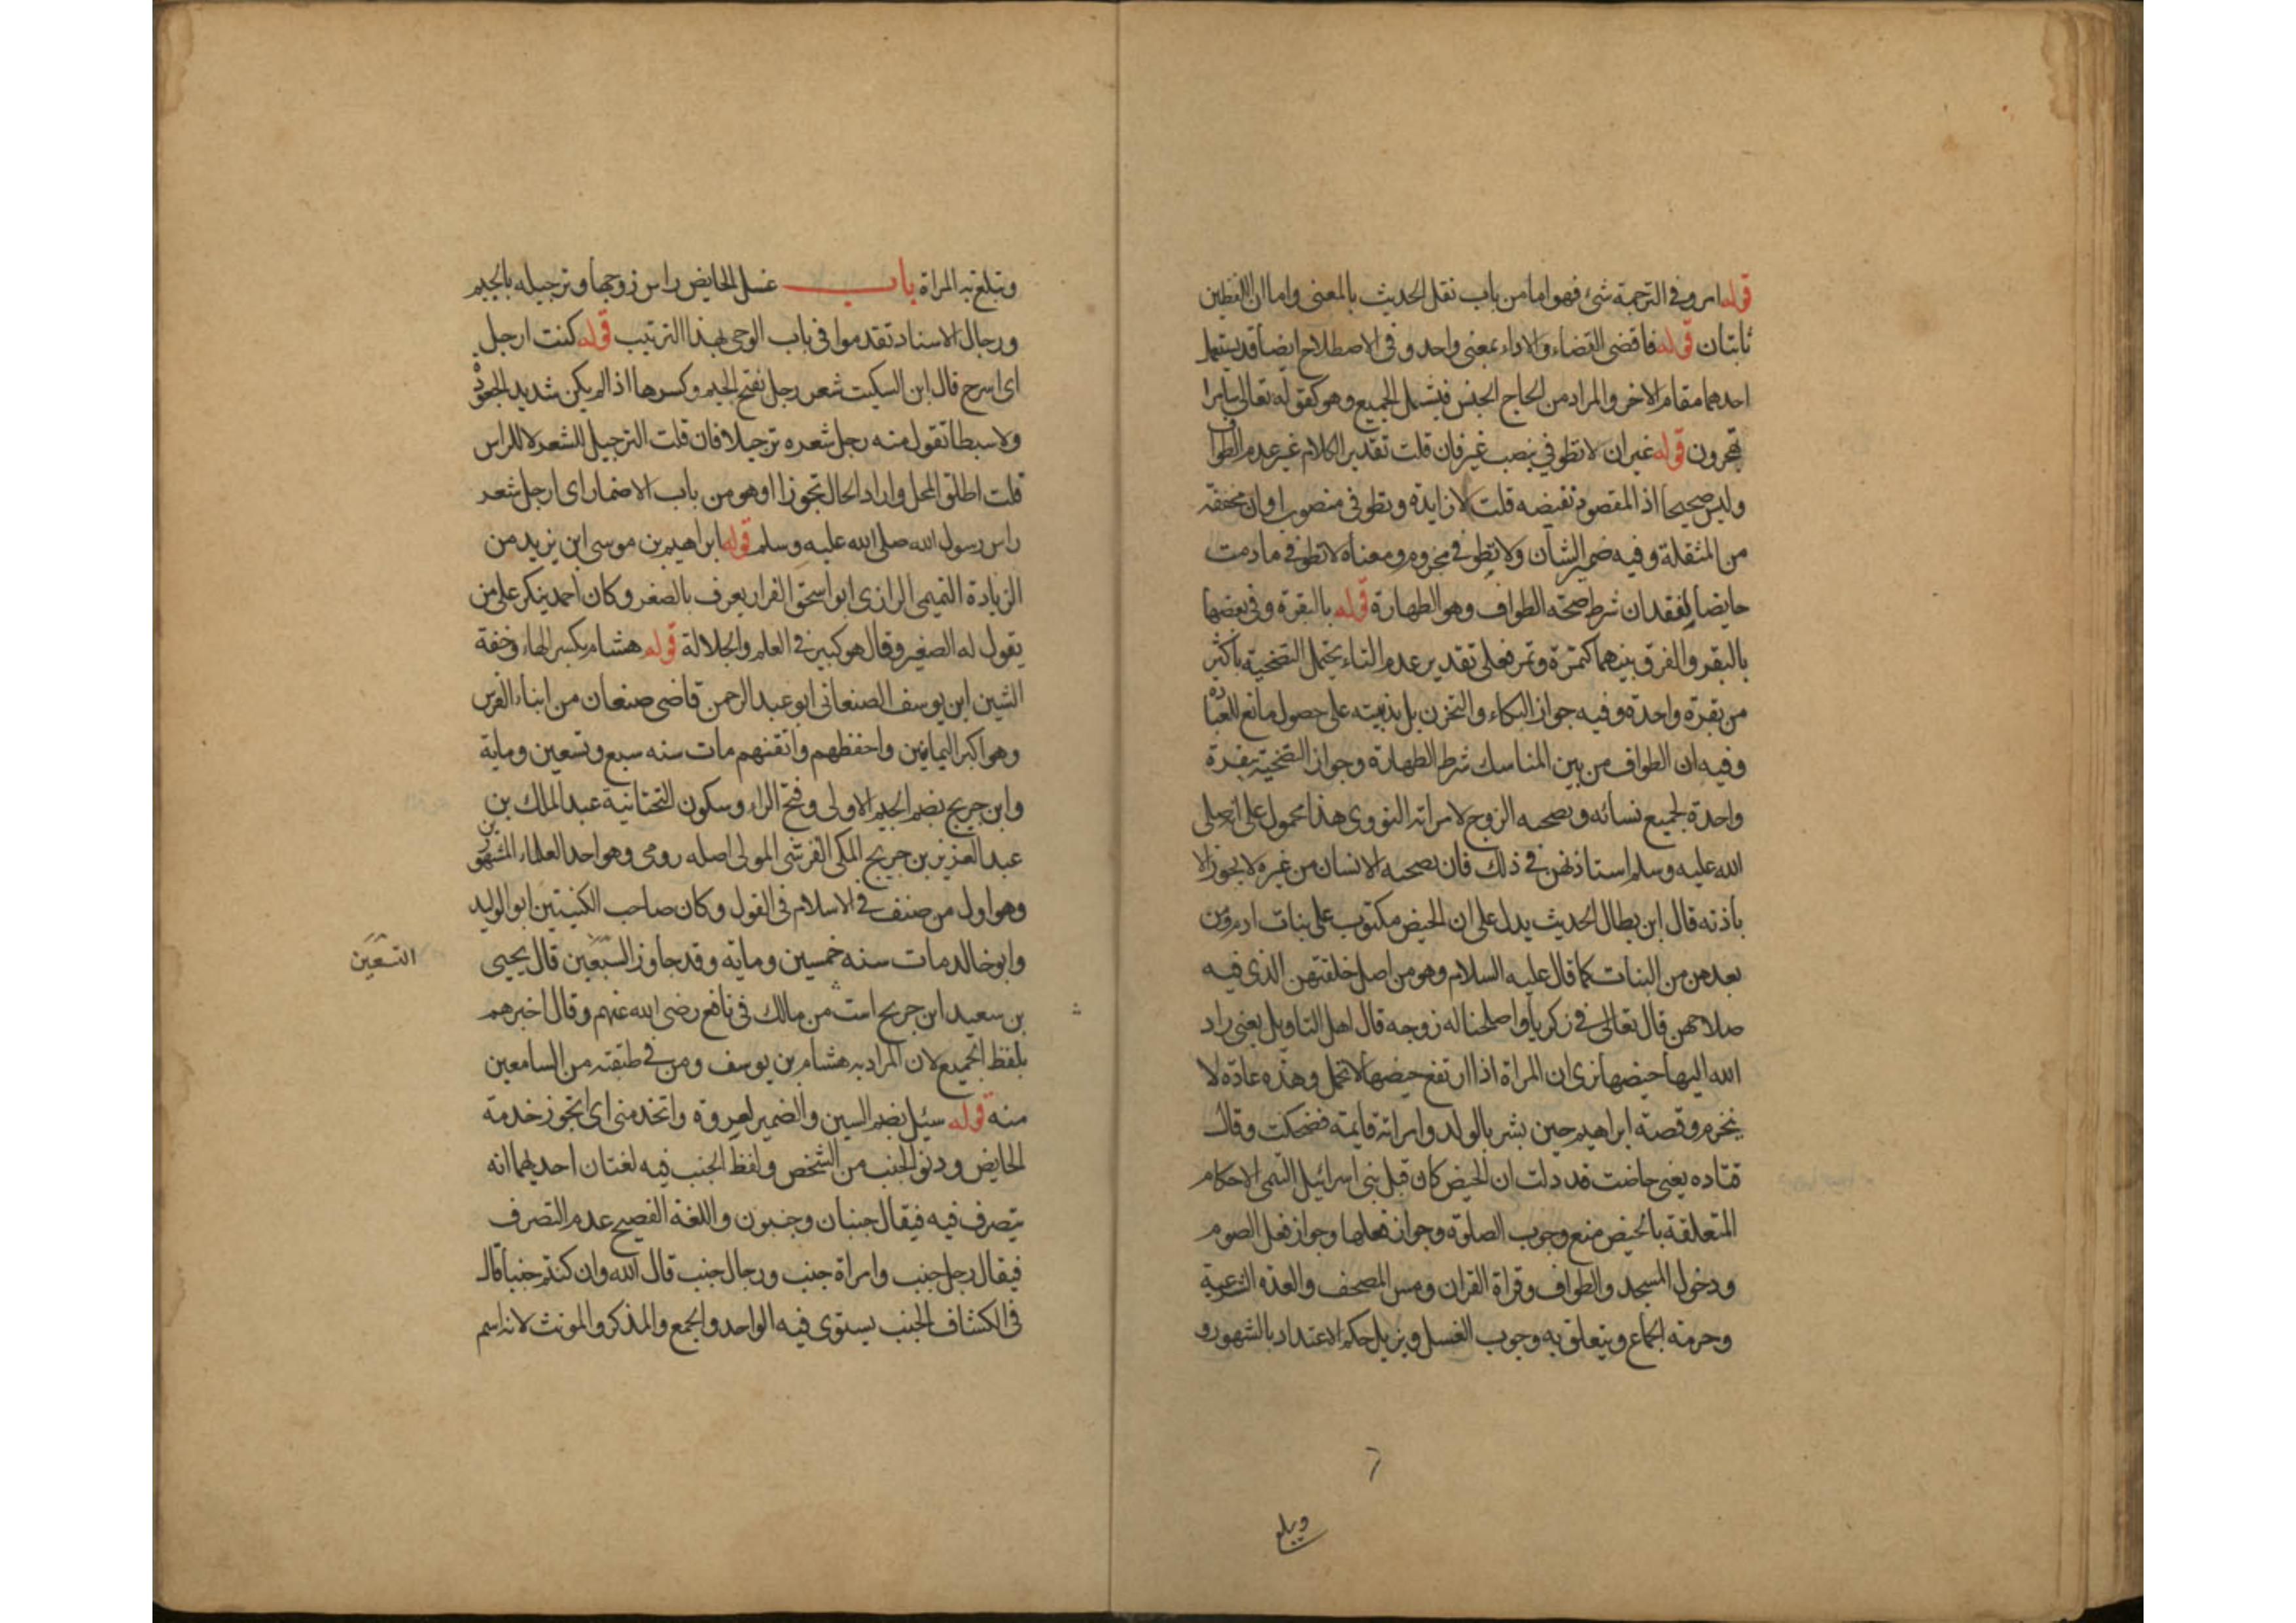 قوله امر وفي الترجمة شئ فهو اما من باب نقل الحديث بالمعنى واما ان اللفظين
ثابتان قوله فاقضى القضاء والاداء بمعنى واحد وفي الاصطلاح ايضا قد يستعمل
احدهما مقام الاخر والمراد من الحاج الجنس فيشمل الجميع وهو كقوله تعالى سامرا
تهجرون قوله غير ان لا تطوفي بنصب غير فان قلت تقدير الكلام غير عدم الطواف
وليس صحيحا اذ المقصود نقيضه قلت لا زايدة وتطوفي منصوب او ان مخففه
من المثقلة وفيه ضمير الشان ولا تطوفي مجزوم ومعناه لا تطوفي ما دمت
حايضا لفقدان شرط صحته الطواف وهو الطهارة قوله بالبقرة وفي بعضها
بالبقر والفرق بينهما كتمرة وتمر فعلى تقدير عدم التاء يحتمل التضحية باكثر
من بقرة واحدة وفيه جواز البكاء والتحزن بل ندبيته على حصول مانع للعبادة
وفيه ان الطواف من بين المناسك شرط الطهارة وجواز التضحية ببقرة
واحدة لجميع نسائه وبصحبه الزوج لامراته النووي هذا محمول على انه صلى
الله عليه وسلم استاذنهن في ذلك فان بصحبه الانسان من غيره لا يجوز الا
باذنه قال ابن بطال الحديث يدل على ان الحيض مكتوب على بنات ادم ومن
بعدهن من البنات كما قال عليه السلام وهو من اصل خلقتهن الذي فيه
صلاحهن قال تعالى في زكريا واصلحنا له زوجه قال اهل التاويل يعني راد
الله اليها حيضها نرى ان المراة اذا ارتفع حيضها لا تحمل وهذه عادة لا
تنخرم وقصة ابراهيم حين بشر بالولد وامراته قايمة فضحكت وقال
قتاده يعني حاضت قد دلت ان الحيض كان قبل بني اسرائيل التيمي الاحكام
المتعلقة بالحيض منع وجوب الصلوة وجواز فعلها وجواز فعل الصوم
ودخول المسجد والطواف وقراة القران ومس المصحف والعدة الشرعية
وحرمته الجماع ويتعلق به وجوب الغسل ويزيل حكم الاعتداد بالشهور و
وتبلغ
وتبلغ به المراة باب غسل الحايض راس زوجها وترجيله بالجيم
ورجال الاسناد تقدموا في باب الوحي بهذا الترتيب قوله كنت ارجل
اي اسرح قال ابن السكيت شعر رجل بفتح الجيم وكسرها اذا لم يكن شديد الجعودة
ولا سبطا تقول منه رجل شعره ترجيلا فان قلت الترجيل للشعر لا للراس
قلت اطلق المحل واراد الحال تجوزا او هو من باب الاضمار اي ارجل شعر
راس رسول الله صلى الله عليه وسلم قوله ابراهيم بن موسى ابن يزيد من
الزيادة التميمي الرازي ابو اسحق الفرا يعرف بالصغير وكان احمد ينكر على من
يقول له الصغير وقال هو كبير في العلم والجلالة قوله هشام بكسر الهاء وخفة
الشين ابن يوسف الصنعاني ابو عبد الرحمن قاضي صنعان من ابناء الفرس
وهو اكبر اليمانيين واحفظهم واتقنهم مات سنه سبع وتسعين وماية
وابن جريج بضم الجيم الاولى وفتح الراء وسكون التحتانية عبد الملك بن
عبد العزيز بن جريج المكي القرشي المولى اصله رومي وهو احد العلماء المشهورين
وهو اول من صنف في الاسلام في القول وكان صاحب الكنيتين ابو الوليد
وابو خالد مات سنه خمسين وماية وقد جاوز السبعين قال يحيى
التسعين
بن سعيد ابن جريج اثبت من مالك في نافع رضى الله عنهم وقال اخبرهم
بلفظ الجميع لان المراد به هشام بن يوسف ومن في طبقته من السامعين
منه قوله سئل بضم السين والضمير لعروة واتخدمني اي اتجوز خدمة
الحايض ودنو الجنب من الشخص ولفظ الجنب فيه لغتان احديهما انه
يتصرف فيه فيقال جنبان وجنبون واللغة الفصيح عدم التصرف
فيقال رجل جنب وامراة جنب ورجال جنب قال الله وان كنتم جنبا قال
في الكشاف الجنب يستوي فيه الواحد والجمع والمذكر والمونث لانه اسم